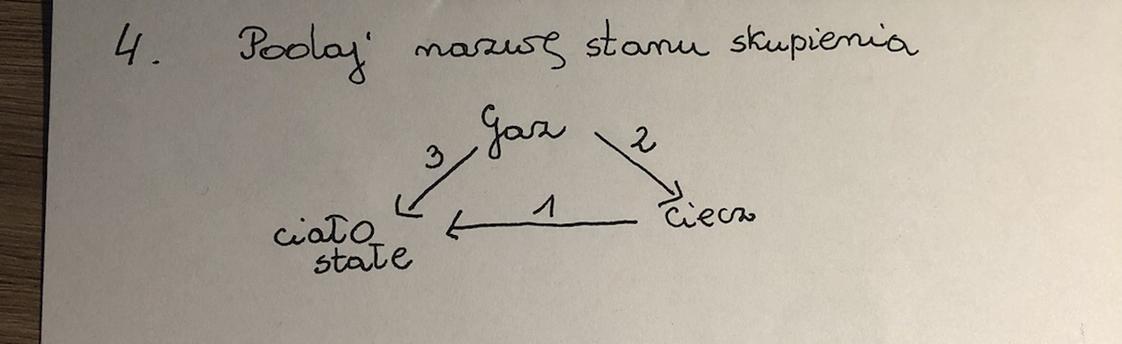 4. Podaj nazwę stanu skupienia
Gaz
3 2
1
ciało ciecz
stałe